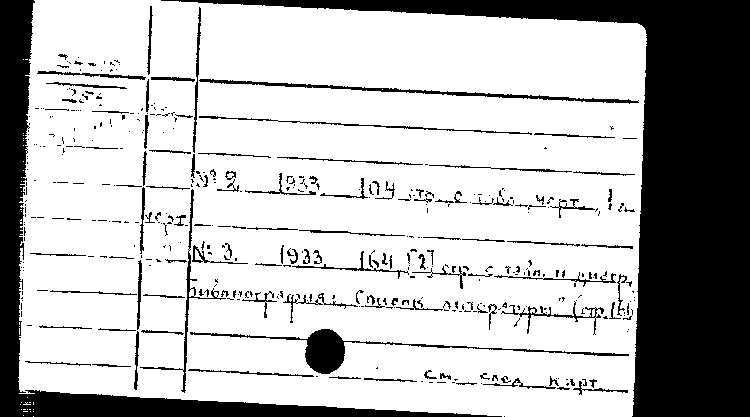 34-19
254
№ 2. 1933. 104 стр. с табл., черт., 1 л.
черт.
№ 3. 1933. 164, [2] стр. с табл. и диагр.
Библиография: „Список литературы" (стр. 164)
См. след. карт.